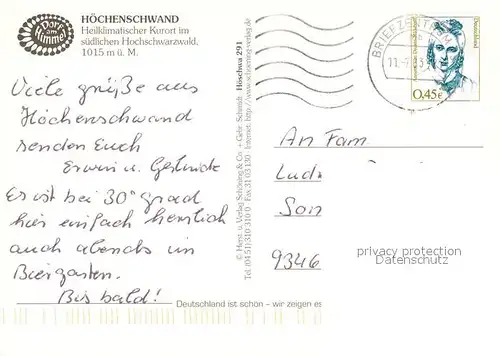 Dorf am Himmel
HÖCHENSCHWAND
Heilklimatischer Kurort im
südlichen Hochschwarzwald,
1015 m ü. M.
Viele grüße aus
Höchenschwand
senden Euch
Erwin u. Gertrude
Es ist bei 30° grad
hier einfach herrlich
auch abends im
Biergarten.
Bis bald!
Höschwa 291
© Herst. u. Verlag Schöning & Co. + Gebr. Schmidt
Tel. (0451) 310 310 0 · Fax 31 03 130 · Internet: http://www.schoening-verlag.de
Deutschland ist schön – wir zeigen es
BRIEFZENTRUM
Deutschland
0,45€
An Fam
Lud
Son
9346
privacy protection
Datenschutz